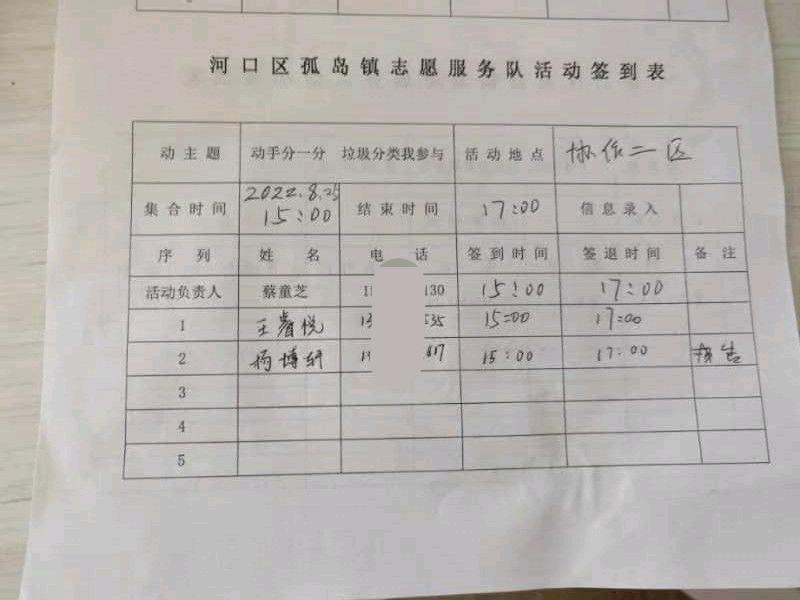 河口区孤岛镇志愿服务队活动签到表
动主题 动手分一分 垃圾分类我参与 活动地点 协作二区
集合时间 2022.8.25 15:00 结束时间 17:00 信息录入
序列 姓名 电话 签到时间 签退时间 备注
活动负责人 蔡童芝 1 130 15:00 17:00
1 王睿悦 13 535 15:00 17:00
2 杨博轩 617 15:00 17:00
3
4
5